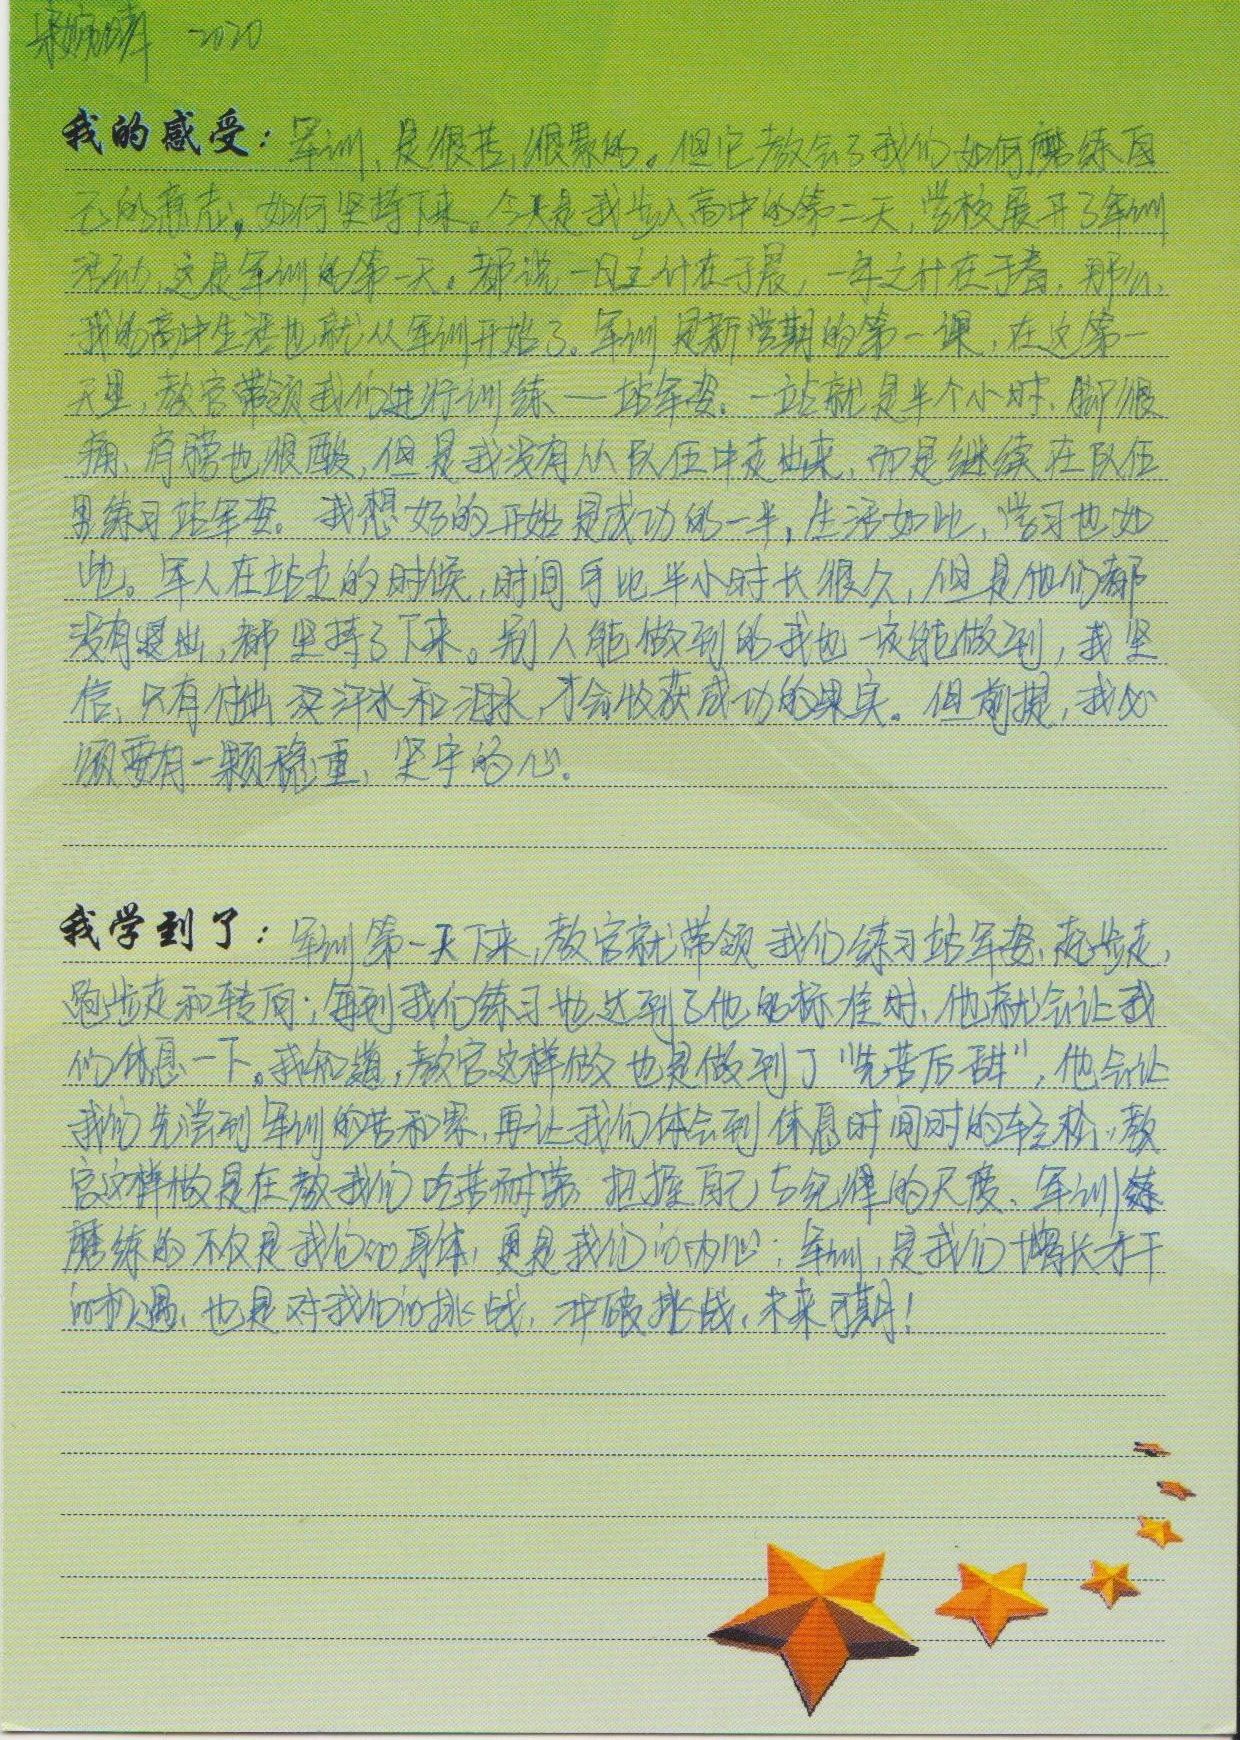 2020
我的感受：军训，是很苦，很累的。但它教会了我们如何磨练自
己的意志，如何坚持下来。今天是我步入高中的第二天，学校展开了军训
活动，这是军训的第一天。都说一日之计在于晨，一年之计在于春，那么，
我的高中生活也就从军训开始了。军训是新学期的第一课，在这第一
天里，教官带领我们进行训练——站军姿。一站就是半个小时，脚很
痛，肩膀也很酸，但是我没有从队伍中走出来，而是继续在队伍
里练习站军姿。我想好的开始是成功的一半，生活如此，学习也如
此。军人在站立的时候，时间要比半小时长很久，但是他们都
没有退出，都坚持了下来。别人能做到的我也一定能做到，我坚
信，只有付出汗水和泪水，才会收获成功的果实。但前提，我必
须要有一颗稳重，坚守的心。
我学到了：军训第一天下来，教官就带领我们练习站军姿、起步走，
跑步走和转向；每到我们练习也达到了他的标准时，他就会让我
们休息一下。我知道，教官这样做也是做到了“先苦后甜”，他会让
我们先尝到军训的苦和累，再让我们体会到休息时间时的轻松，教
官这样做是在教我们吃苦耐劳，把握自己与纪律的尺度、军训
磨练的不仅是我们的身体，更是我们的内心；军训，是我们增长才干
的机遇，也是对我们的挑战，冲破挑战，未来可期！